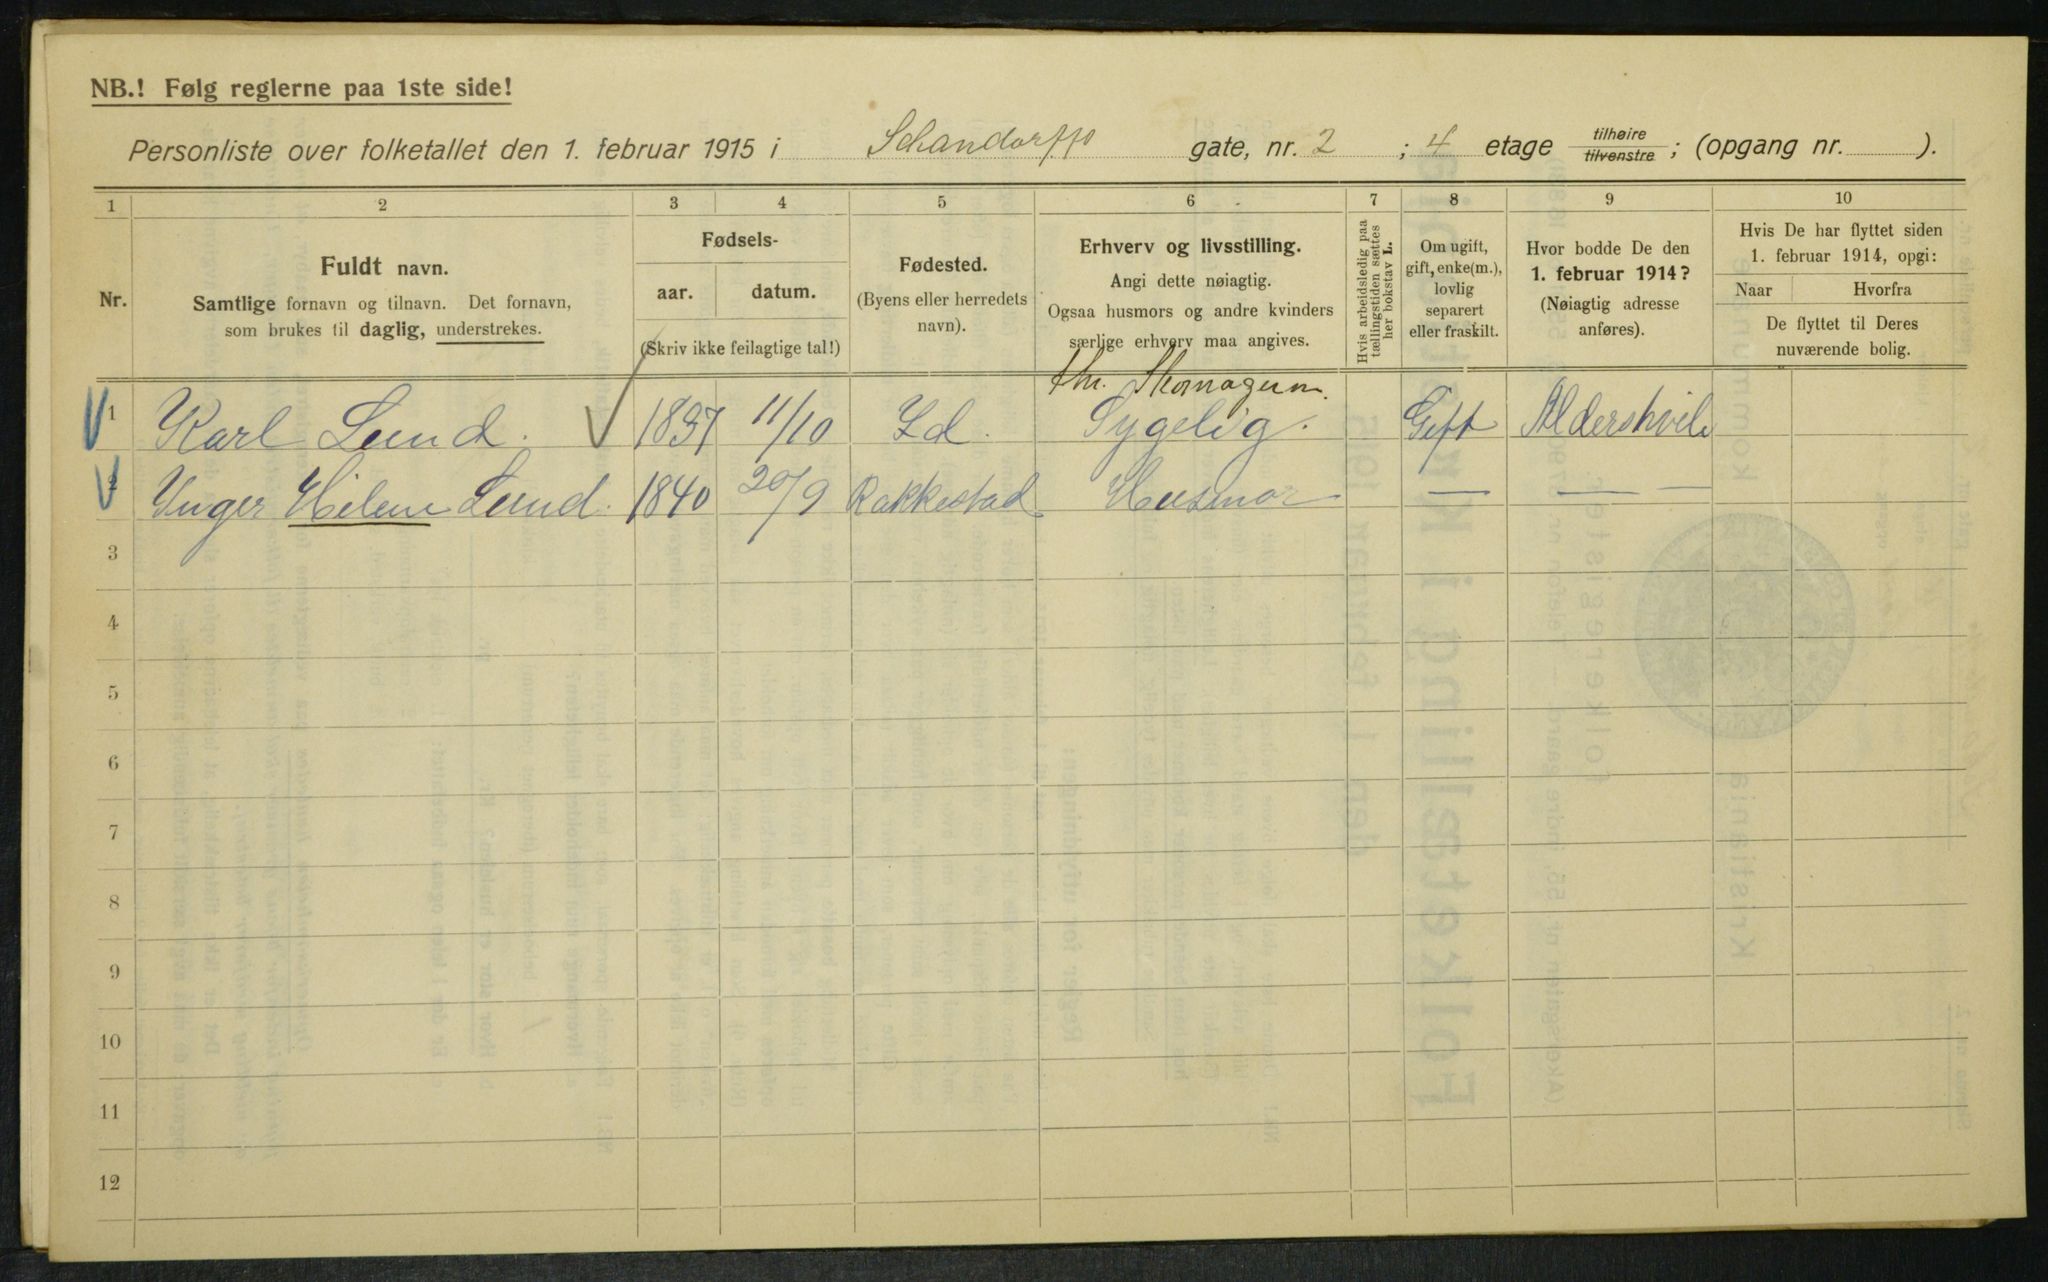 NB.! Følg reglerne paa 1ste side!
Personliste over folketallet den 1. februar 1915 i Schandorffs gate, nr. 2 ; 4 etage tilhøire tilvenstre ; (opgang nr. ).
1 2 3 4 5 6 7 8 9 10
Nr.
Fuldt navn.
Samtlige fornavn og tilnavn. Det fornavn,
som brukes til daglig, understrekes.
Fødsels-
aar. datum.
(Skriv ikke feilagtige tal!)
Fødested.
(Byens eller herredets
navn).
Erhverv og livsstilling.
Angi dette nøiagtig.
Ogsaa husmors og andre kvinders
særlige erhverv maa angives.
Hvis arbeidsledig paa
tællingstiden sættes
her bokstav L.
Om ugift,
gift, enke(m.),
lovlig
separert
eller fraskilt.
Hvor bodde De den
1. februar 1914?
(Nøiagtig adresse
anføres).
Hvis De har flyttet siden
1. februar 1914, opgi:
Naar Hvorfra
De flyttet til Deres
nuværende bolig.
fhv. Skomagerm.
1 Karl Lund. 11/10 Sygelig. Gift Aldershvile
2 Inger Helene Lund. 1840 20/9 Rakkestad Husmor — — —
3
4
5
6
7
8
9
10
11
12